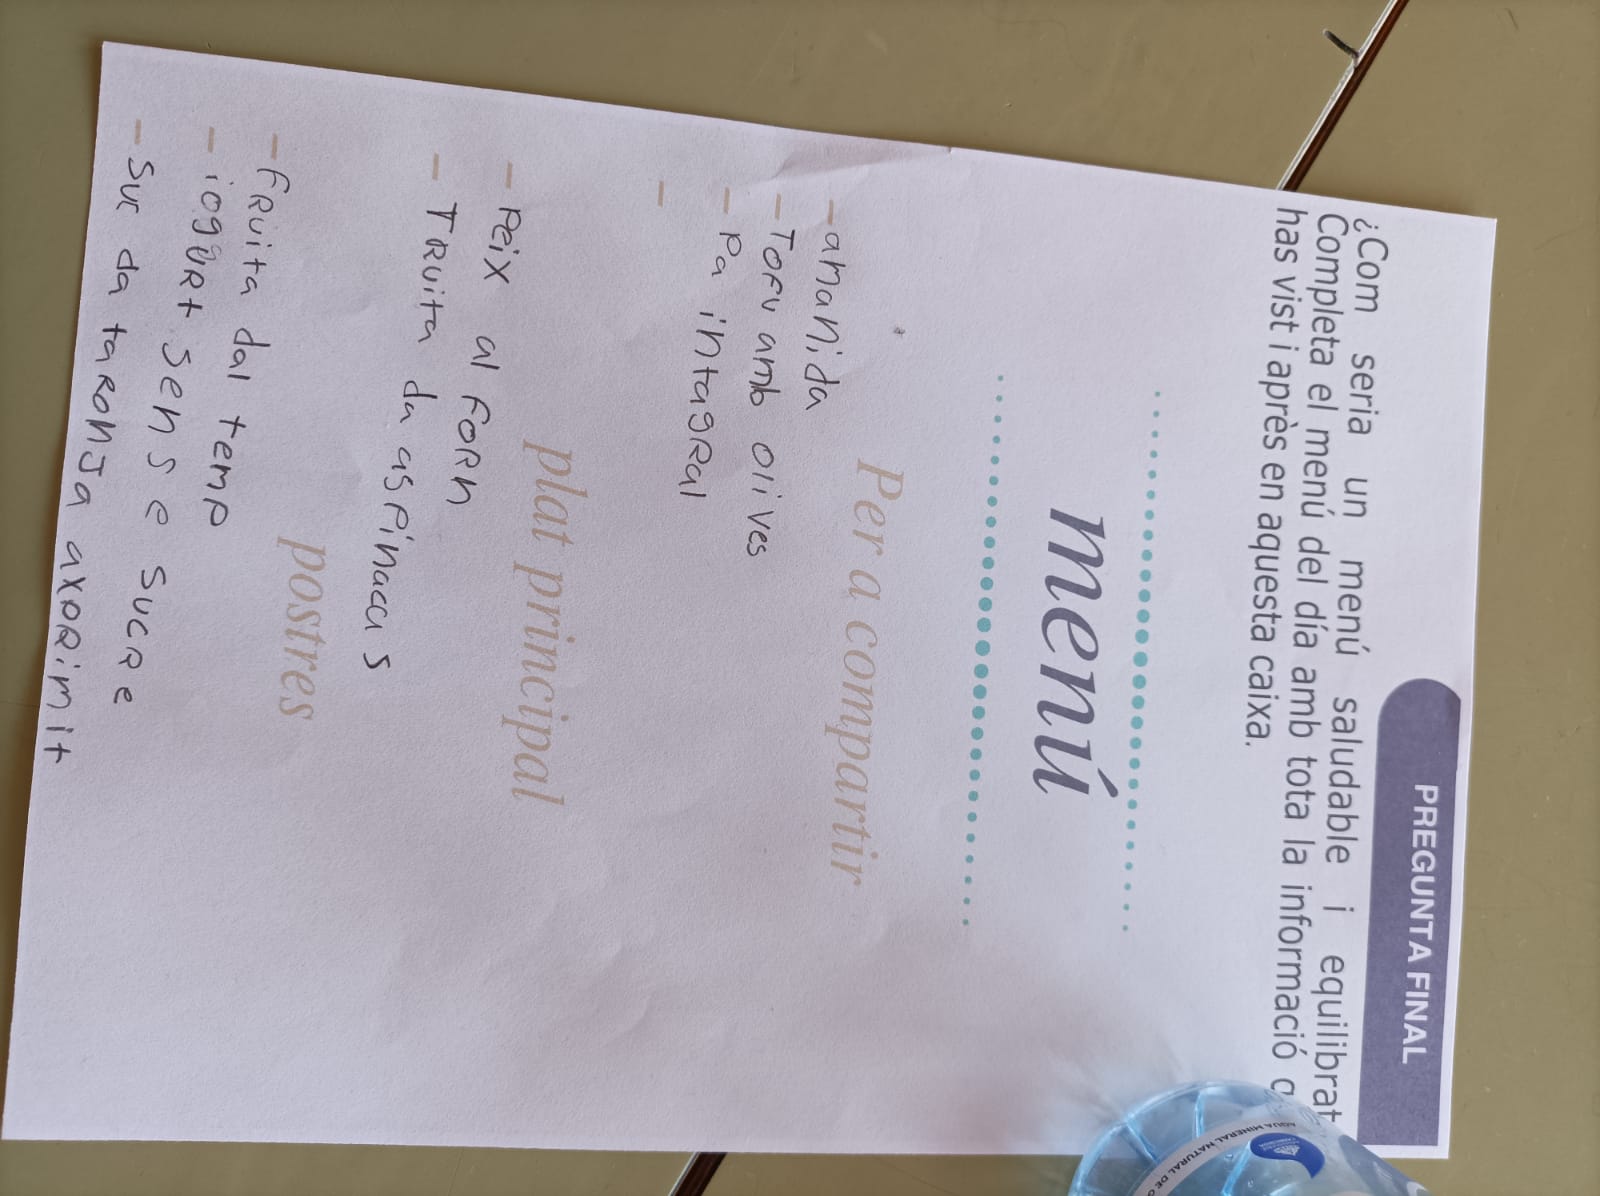 PREGUNTA FINAL
¿Com seria un menú saludable i equilibrat
Completa el menú del día amb tota la informació q
has vist i après en aquesta caixa.
menú
Per a compartir
- amanida
- Tofu amb olives
- Pa intagral
-
plat principal
- Peix al forn
- Truita da aspinacas
postres
- fruita dal temp
- iogurt sense sucre
- suc da taronja axprimit
AGUA MINERAL NATURAL DE